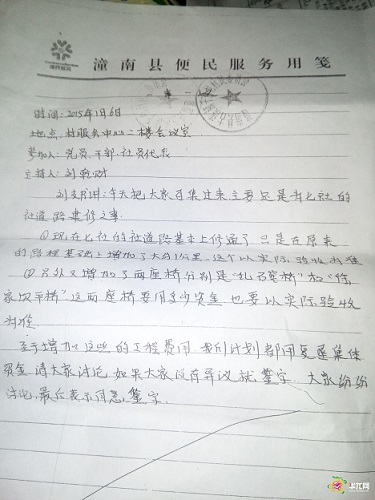 潼南县便民服务用笺
时间:2015年1月6日
地点:村服务中心二楼会议室
参加人:党员、干部、社员代表
主持人:刘
刘支书讲:今天把大家召集过来主要只是七社的
社道路建修之事.
①现在七社的社道路基本上修通了只是在原来
的路程基础上增加了大约 公里,这个以实际验收为准
②另外又增加了两座桥分别是“ 桥”和“
家 桥”这两座桥要用多少资金也要以实际验收
为准.
至于增加这些的工程费用,我们计划都用复垦集体
资金,请大家讨论,如果大家没有异议就签字.大家纷纷
讨论,最后表示同意签字.
华龙网